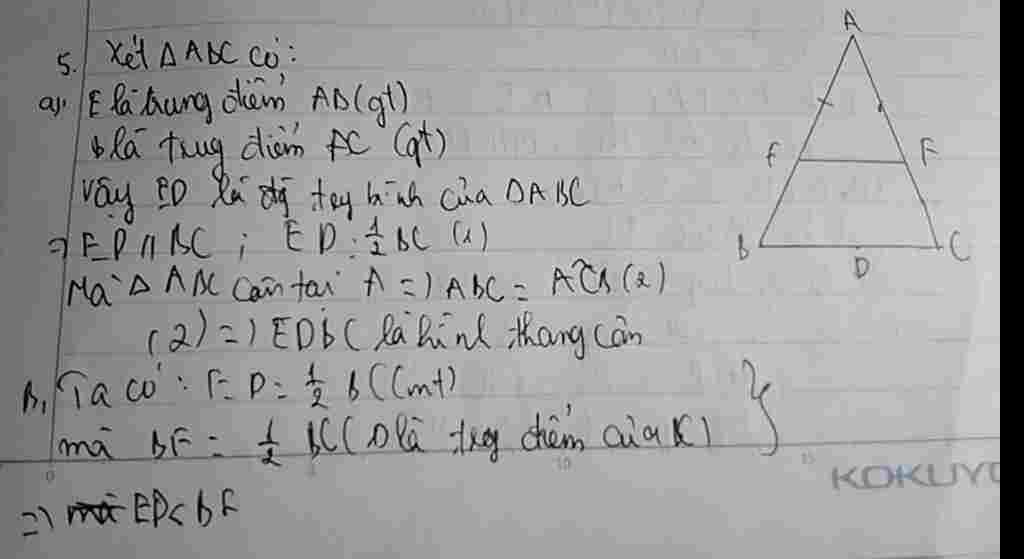 5. Xét ΔABC có:
a, E là trung điểm AB (gt)
D là trug điểm AC (gt)
Vậy ED là đg tey bình của ΔABC
=> ED // BC ; ED : 1/2 BC (1)
Mà ΔABC cân tại A => ABC = ACB (2)
(2) => EDBC là hình thang cân
B, Ta có : ED = 1/2 BC (cmt)
mà BF = 1/2 BC ( D là trg điểm của BC )
=> ED < BF
A
F
F
B
D
C
KOKUYO
0
10
15